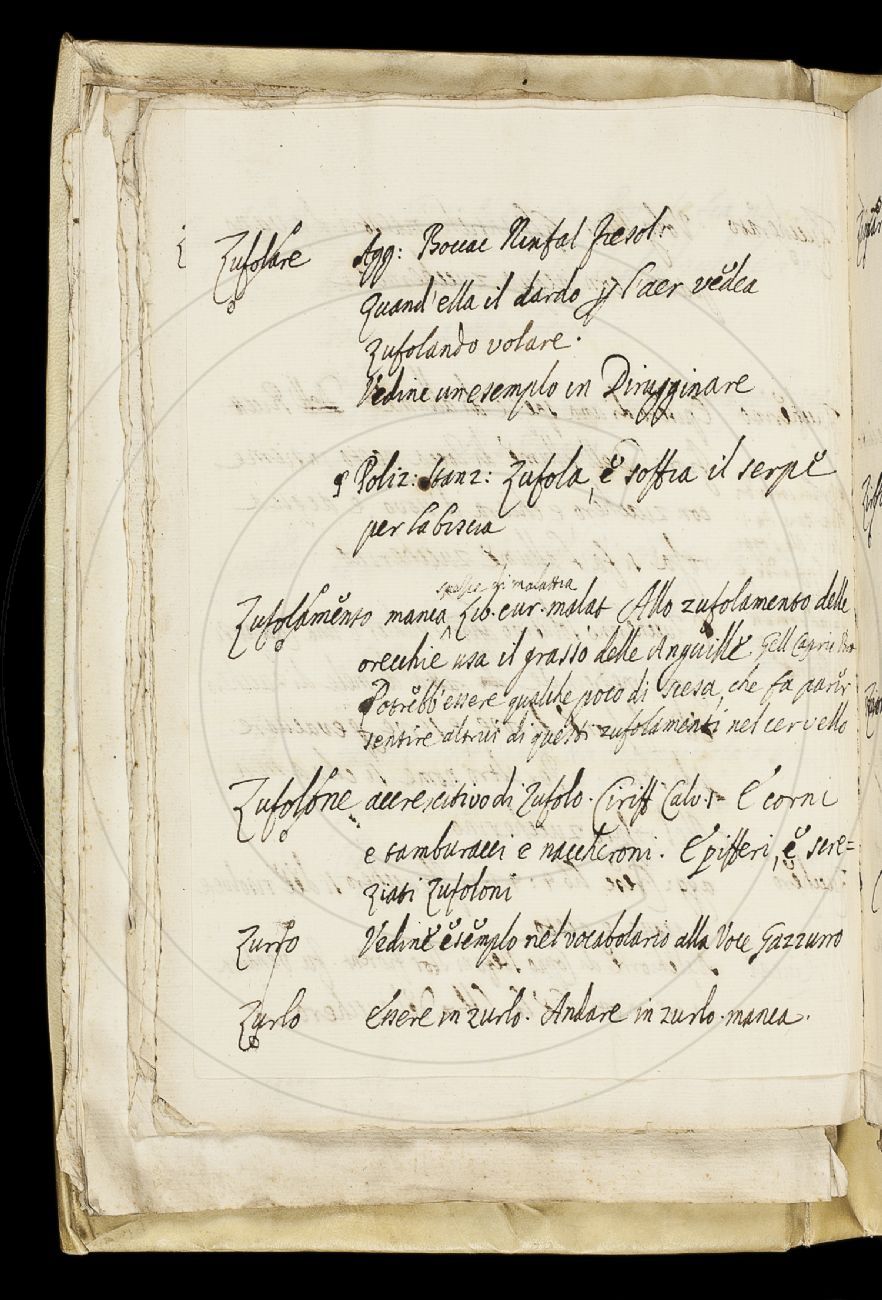 Zufolare Agg: Boccac Ninfal Fiesol:
Quand'ella il dardo p l'aer vedea
Zufolando volare.
Vedine un esemplo in Diruginare
Poliz: stanz: Zufola, e soffia il serpe
per la biscia
spezie di malattia
Zufolamento manca Lib. cur. malat Allo zufolamento delle
orecchie usa il grasso delle Anguille Gell Capric
Potrebb'essere qualche poco di scesa, che fa parer
sentire altrui di questi zufolamenti nel cervello
Zufolone accrescitivo di Zufolo. Ciriff Calv. 1- E corni
e tamburacci e naccheroni. E pifferi, e sere=
ziati Zufoloni
Zurro Vedine esemplo nel vocabolario alla Voce Gazzurro
Zurlo essere in zurlo. Andare in zurlo. manca.